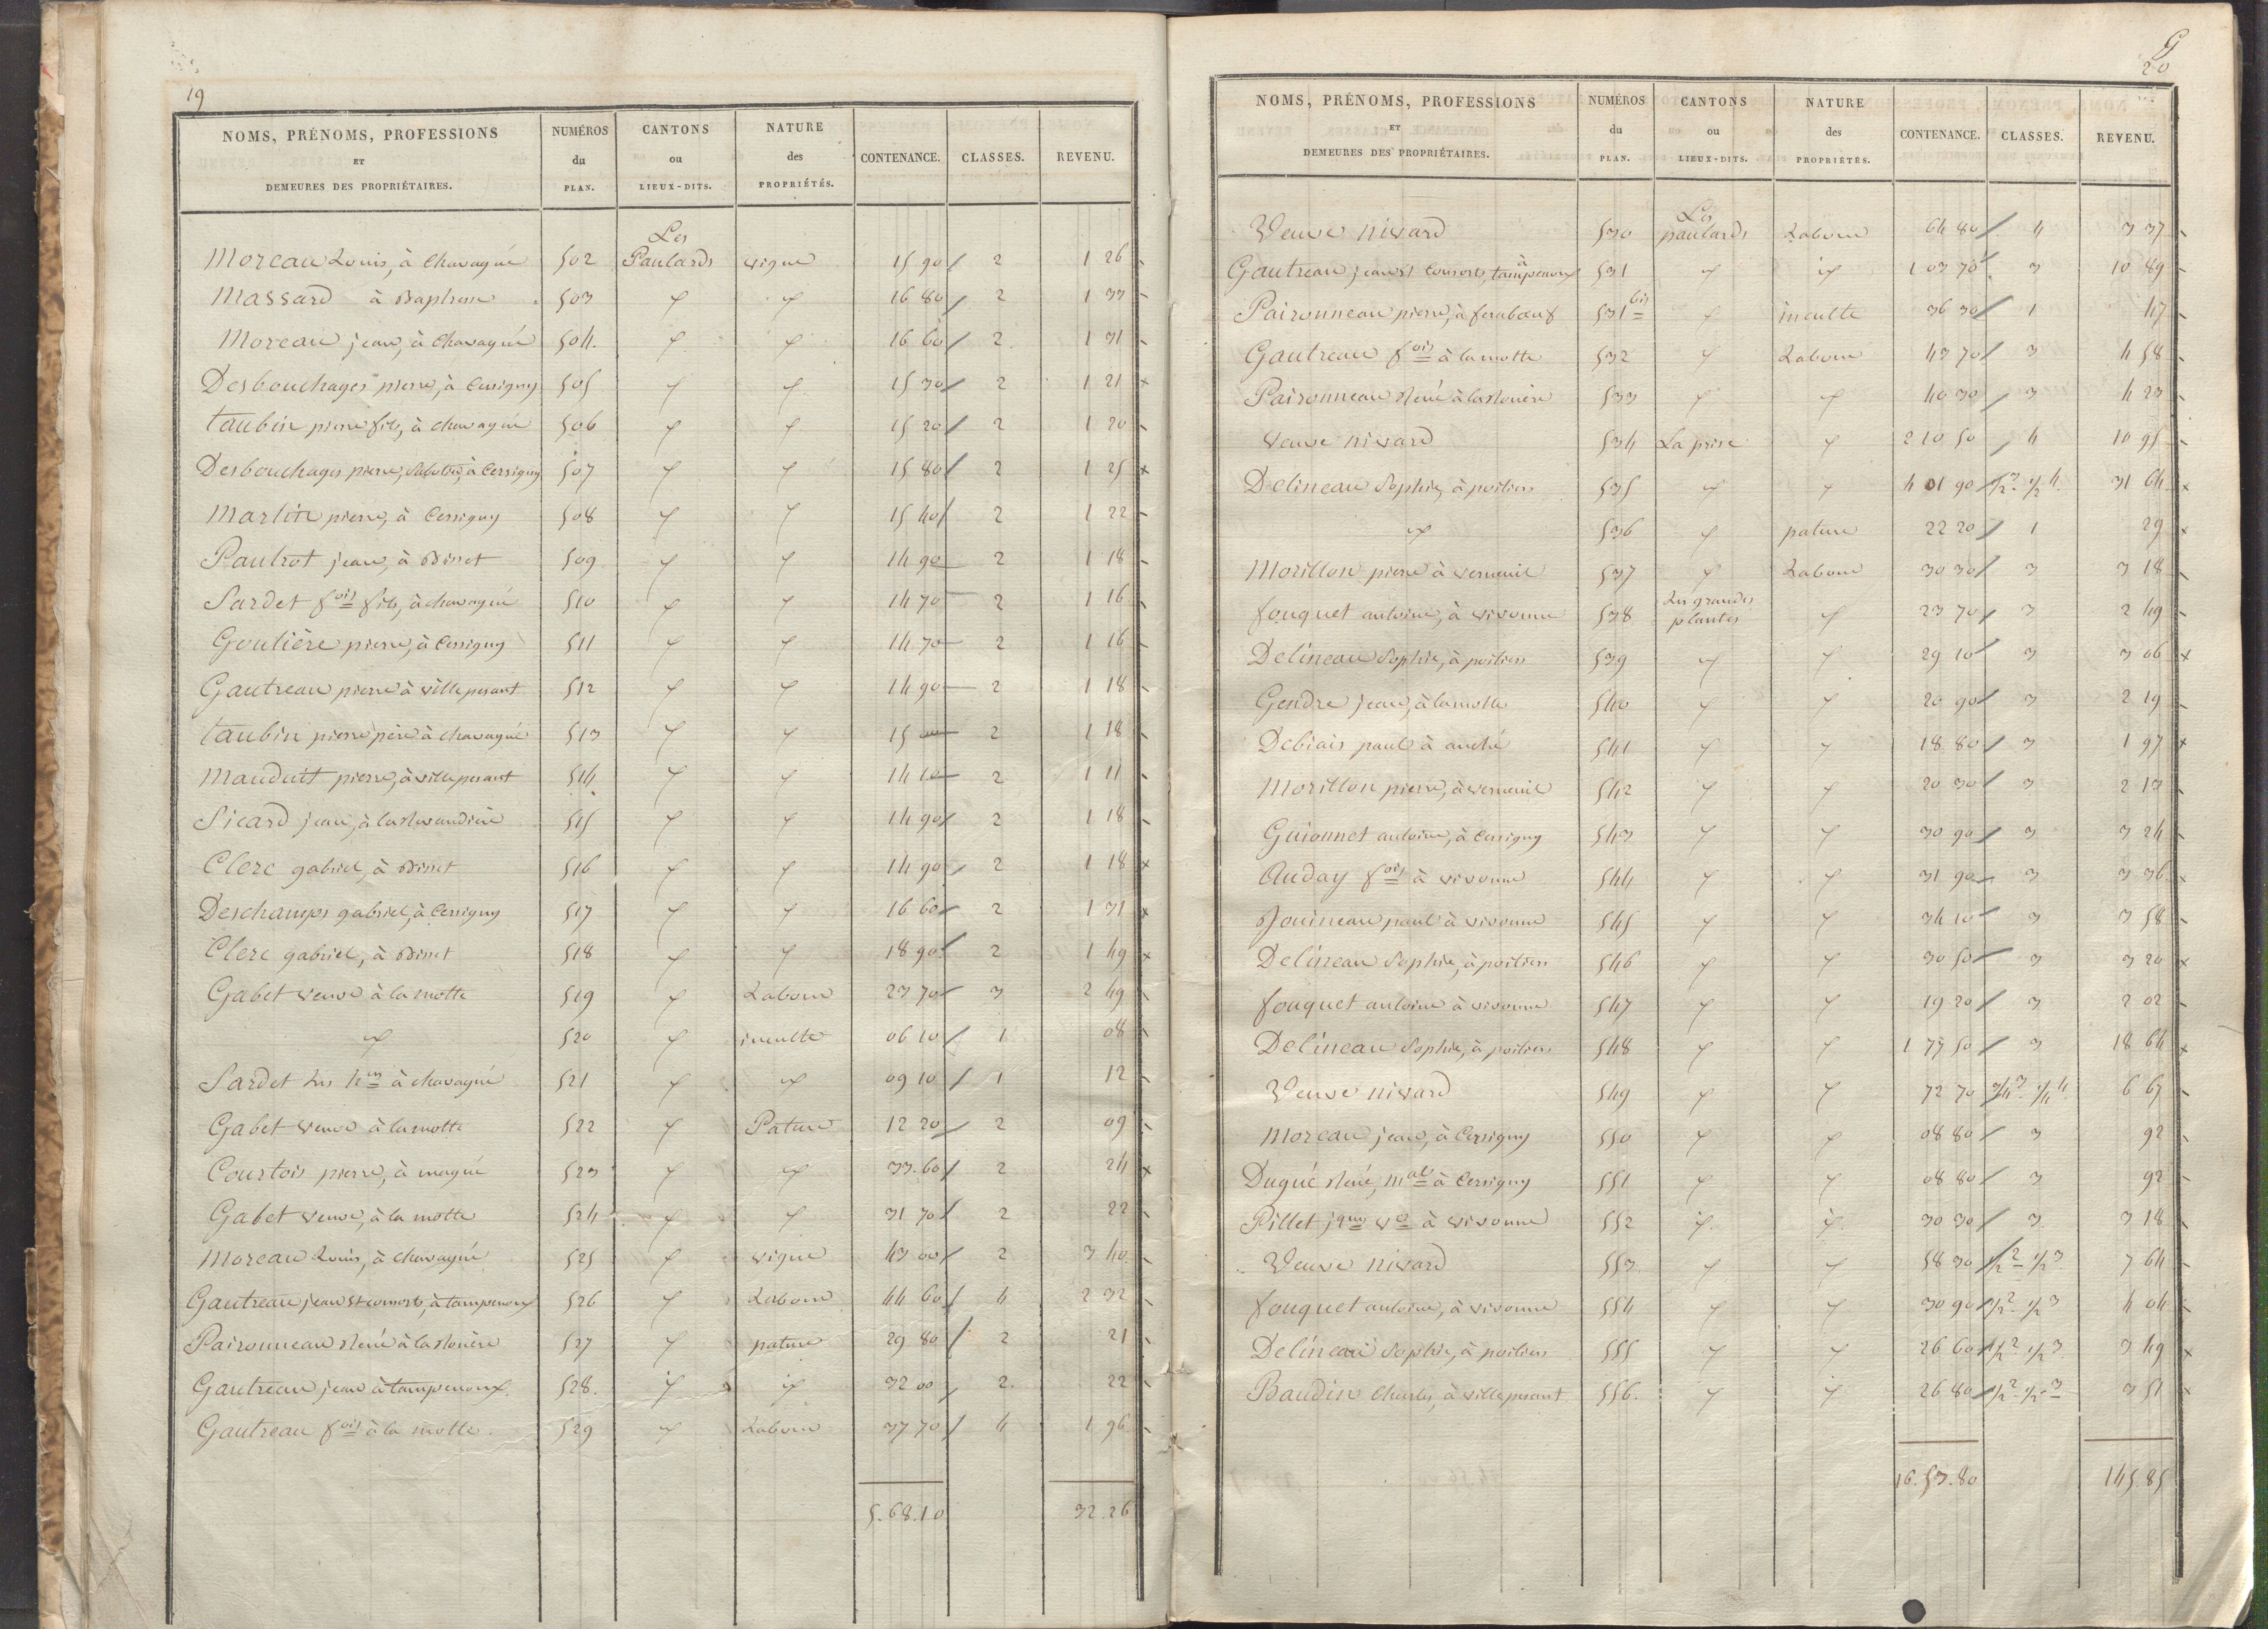 19
NOMS, PRÉNOMS, PROFESSIONS ET DEMEURES DES PROPRIÉTAIRES. NUMÉROS du PLAN. CANTONS ou LIEUX-DITS. NATURE des PROPRIÉTÉS. CONTENANCE. CLASSES. REVENU.
Moreau Louis, à Chavagné 502 Les Paulards vigne 15 90 2 1 26
Massard à Baptresse 503 " " 16 80 2 1 33
Moreau jean, à Chavagné 504. " " 16 60 2 1 31
Desbouchages pierre, à Cersigny 505 " " 15 30 2 1 21 x
taubin pierre fils, à chavagné 506 " " 15 20 2 1 20
Desbouchages pierre, Sabotier, à Cersigny 507 " " 15 80 2 1 25 x
Martin pierre, à Cersigny 508 " " 15 40 2 1 22
Pautrot jean, à Bisset 509 " " 14 90 2 1 18
Sardet fois fils, à chavagné 510 " " 14 70 2 1 16
Goulière pierre, à Cersigny 511 " " 14 70 2 1 16
Gautreau pierre à villepesant 512 " " 14 90 2 1 18
taubin pierre père à chavagné 513 " " 15 2 1 18
Mauduit pierre, à villepesant 514 " " 14 10 2 1 11
Sicard jean, à 515 " " 14 90 2 1 18
Clerc gabriel, à Bisset 516 " " 14 90 2 1 18 x
Deschamps gabriel, à Cersigny 517 " " 16 60 2 1 31 x
Clerc gabriel, à Bisset 518 " " 18 90 2 1 49 x
Gabet veuve à la motte 519 " Labour 23 70 3 2 49
" 520 " inculte 06 10 1 08
Sardet les hers à chavagné 521 " " 09 10 1 12
Gabet veuve à la motte 522 " Pature 12 20 2 09
Courtois pierre, à magné 523 " " 33.60 2 24 x
Gabet veuve, à la motte 524 " " 31 70 2 22
Moreau Louis, à chavagné 525 " vigne 43 00 2 3 40
Gautreau jean et consorts, à tampenoux 526 " Labour 44 60 4 2 32
Paironneau René à la Ronère 527 " pature 29 80 2 21
Gautreau jean à tampenoux 528. " " 32 00 2. 22
Gautreau fois à la motte. 529 " Labour 37 70 4 1 96
5.68.10 32.26
20
NOMS, PRÉNOMS, PROFESSIONS ET DEMEURES DES PROPRIÉTAIRES. NUMÉROS du PLAN. CANTONS ou LIEUX-DITS. NATURE des PROPRIÉTÉS. CONTENANCE. CLASSES. REVENU.
Veuve nivard 530 Les paulards Labour 64 80 4 3 37
Gautreau jean et Consorts, à tampenoux 531 " " 1 03 70 3 10 89
Paironneau pierre, à feraboeuf 531 bis " inculte 36 30 1 47
Gautreau fois à la motte 532 " Labour 43 70 3 4 58
Paironneau René à la Ronère 533 " " 40 30 3 4 23
veuve nivard 534 La prise " 2 10 50 4 10 95
Delineau Sophie, à poitiers 535 " " 4 01 90 1/2 3. 1/2 4. 31 64 x
" 536 " pature 22 20 1 29 x
Morillon pierre à verneuil 537 " Labour 30 30 3 3 18
fouquet antoine, à vivonne 538 Les grandes plantes " 23 70 3 2 49
Delineau Sophie, à poitiers 539 " " 29 10 3 3 06 x
Gendre jean, à la motte 540 " " 20 90 3 2 19
Debiais paul à anché 541 " " 18 80 3 1 97 x
Morillon pierre, à verneuil 542 " " 20 30 3 2 13
Guionnet antoine, à Cersigny 543 " " 30 90 3 3 24
Auday fois à vivonne 544 " " 31 90 3 3 36
Jouineau paul à vivonne 545 " " 34 10 3 3 58
Delineau Sophie, à poitiers 546 " " 30 50 3 3 20 x
fouquet antoine à vivonne 547 " " 19 20 3 2 02
Delineau Sophie, à poitiers 548 " " 1 77 50 3 18 64 x
Veuve nivard 549 " " 72 70 3/4 3. 1/4 4. 6 67
Moreau jean, à Cersigny 550 " " 08 80 3 92
Dugué René, mal à Cersigny 551 " " 08 80 3 92
Pillet jques ve à vivonne 552 " " 30 30 3 3 18
Veuve nivard 553 " " 58 30 1/2 2 1/2 3 7 64
fouquet antoine, à vivonne 554 " " 30 90 1/2 2. 1/2 3 4 04
Delineau Sophie, à poitiers 555 " " 26 60 1/2 2 1/2 3 3 49 x
Baudin Charles, à villepesant 556. " " 26 80 1/2 2 1/2 3 3 51 x
16.53.80 145.85